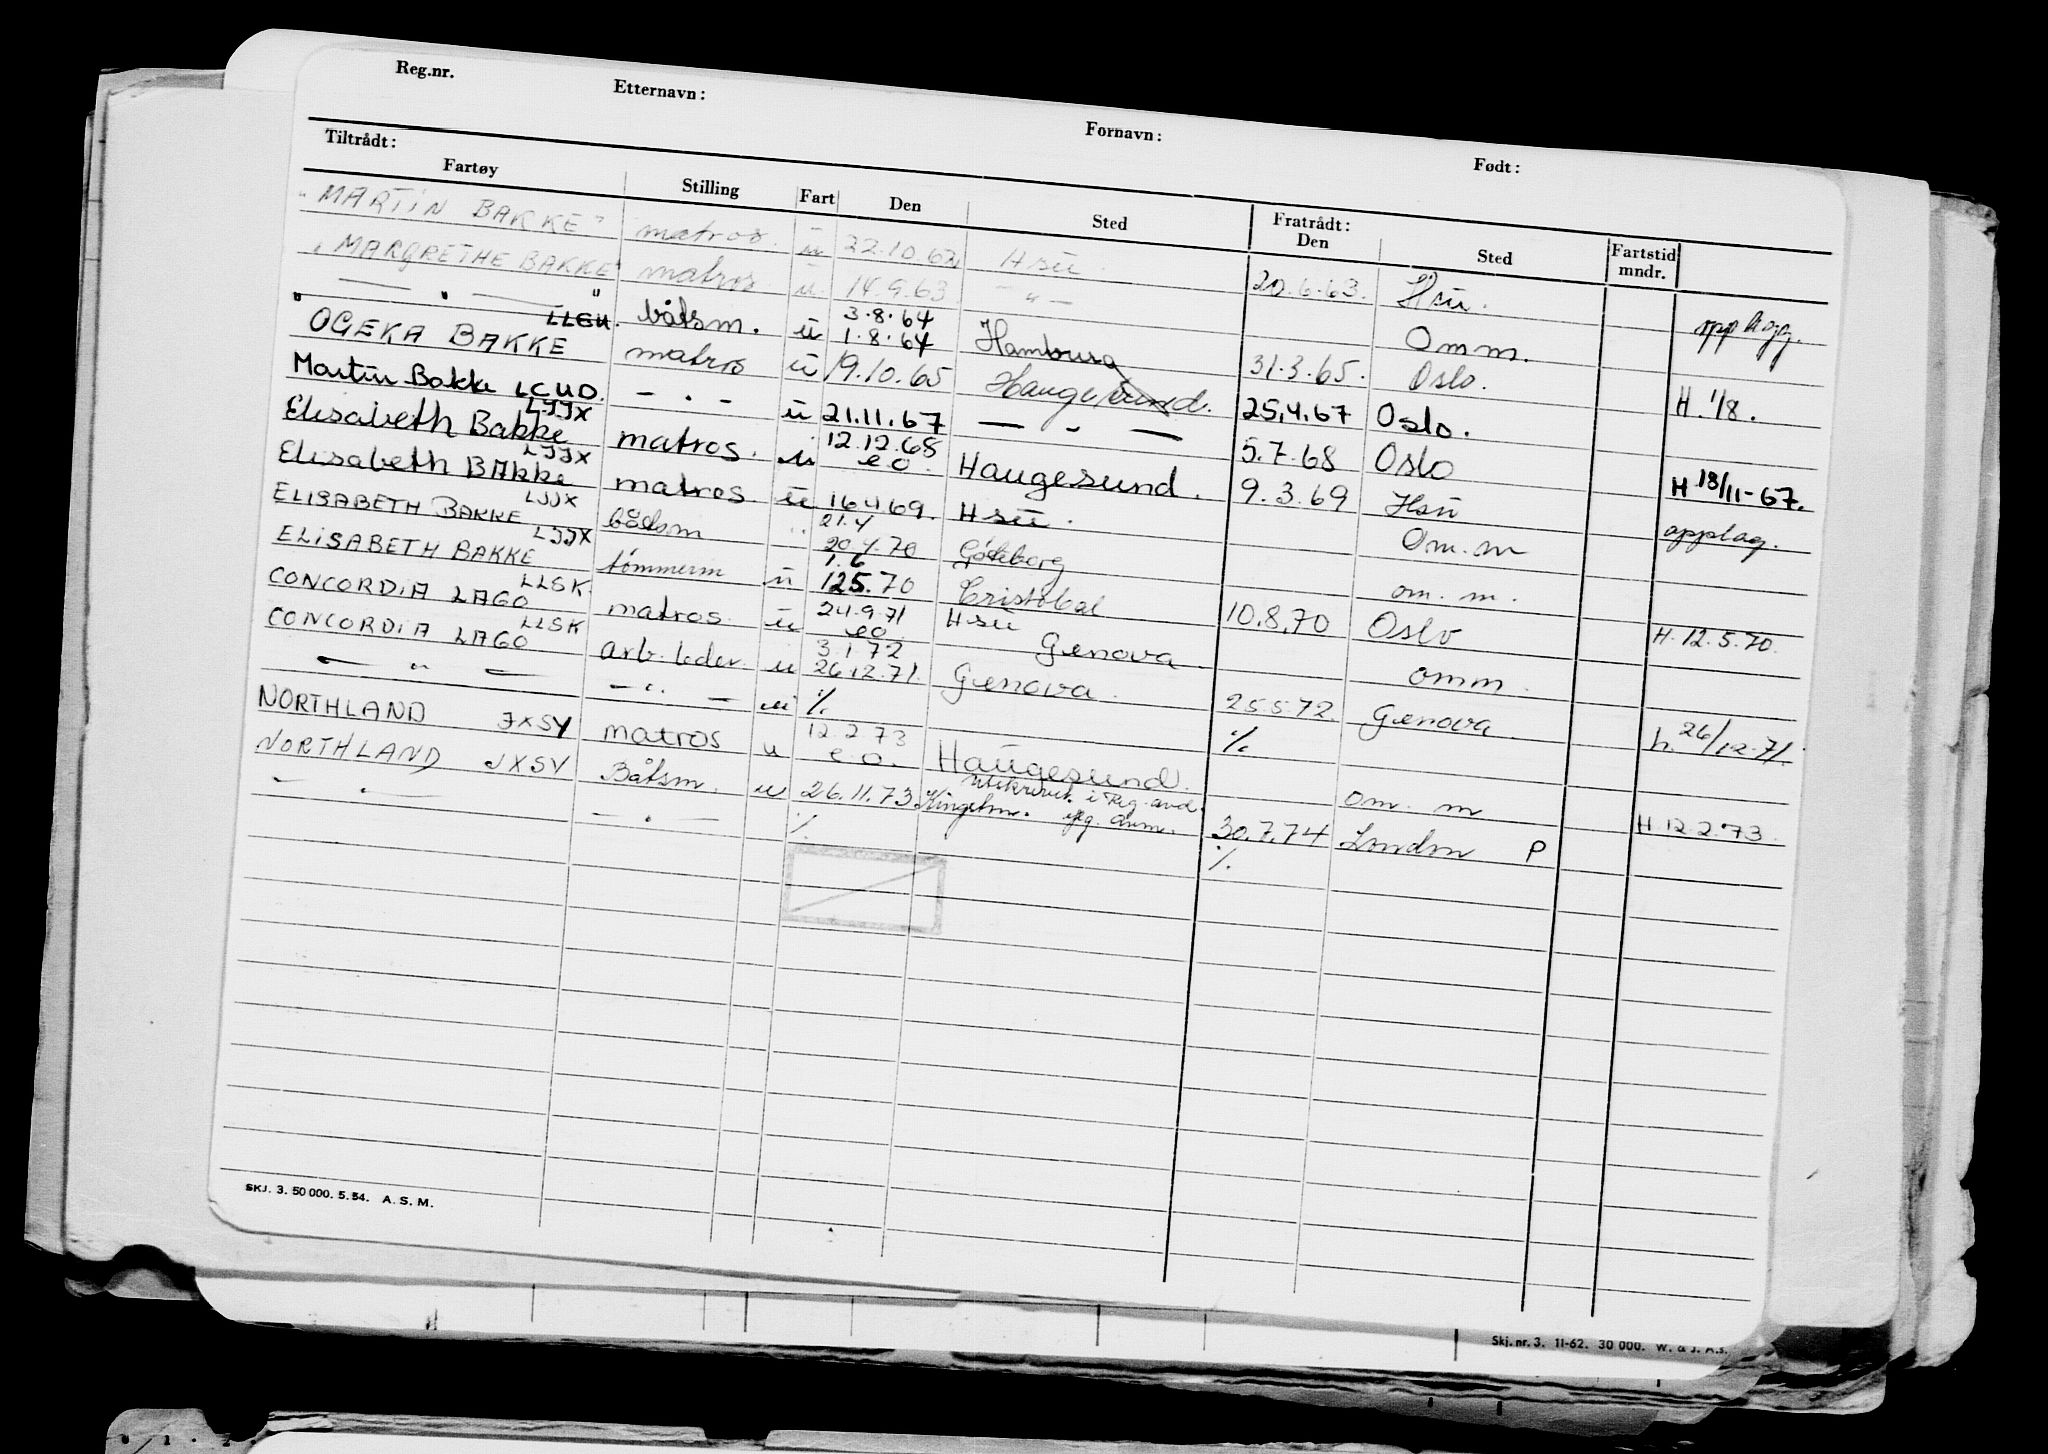 Reg.nr. Etternavn: Fornavn: Født:
Tiltrådt: Fratrådt:
Fartøy Stilling Fart Den Sted Den Sted Fartstid mndr.
"MARTIN BAKKE" matros. ū 22.10.62 Hsū. 20.6.63. Hsū. opplagg.
"MARGRETHE BAKKE" matros ū 14.9.63 — " — Omm.
— " — " båtsm. ū 3.8.64 1.8.64 Hamburg 31.3.65. Oslo. H. 1/8.
"OGEKA BAKKE LLEU. matros ū 19.10.65 Haugesund. 25.4.67 Oslo.
Martin Bakke LCUD. — . — ū 21.11.67 — " — 5.7.68 Oslo H 18/11-67.
Elisabeth Bakke LJJX matros. ū 12.12.68 e o. Haugesund. 9.3.69 Hsū opplag.
Elisabeth BAkke LJJX matros ū 16 4 69. Hsū. Om. m
ELISABETH BAKKE LJJX båtsm " 21.4 20.4.70 Göteborg om. m.
ELISABETH BAKKE LJJX tømmerm ū 1.6 12.5.70 Cristobal 10.8.70 Oslo H. 12.5.70.
CONCORDIA LAGO LLSK. matros. ū 24.9.71 eo. Hsū Genova omm.
CONCORDIA LAGO LLSK arb. leder. u 3.1.72 26.12.71. Genova. 25.5.72. Genova h. 26/12.71.
— " — — ". — u ٪. ٪.
NORTHLAND JXSY matros u 12.2.73 e.o. Haugesund. om. m H.12.2.73.
NORTHLAND JXSY Båtsm. u 26.11.73 Kingston. 30.7.74 London P
— . — — . — ٪. ٪.
SKJ. 3. 50 000. 5. 54. A. S. M.
Skj. nr. 3. 11-62. 30 000. W. & J. A.s.